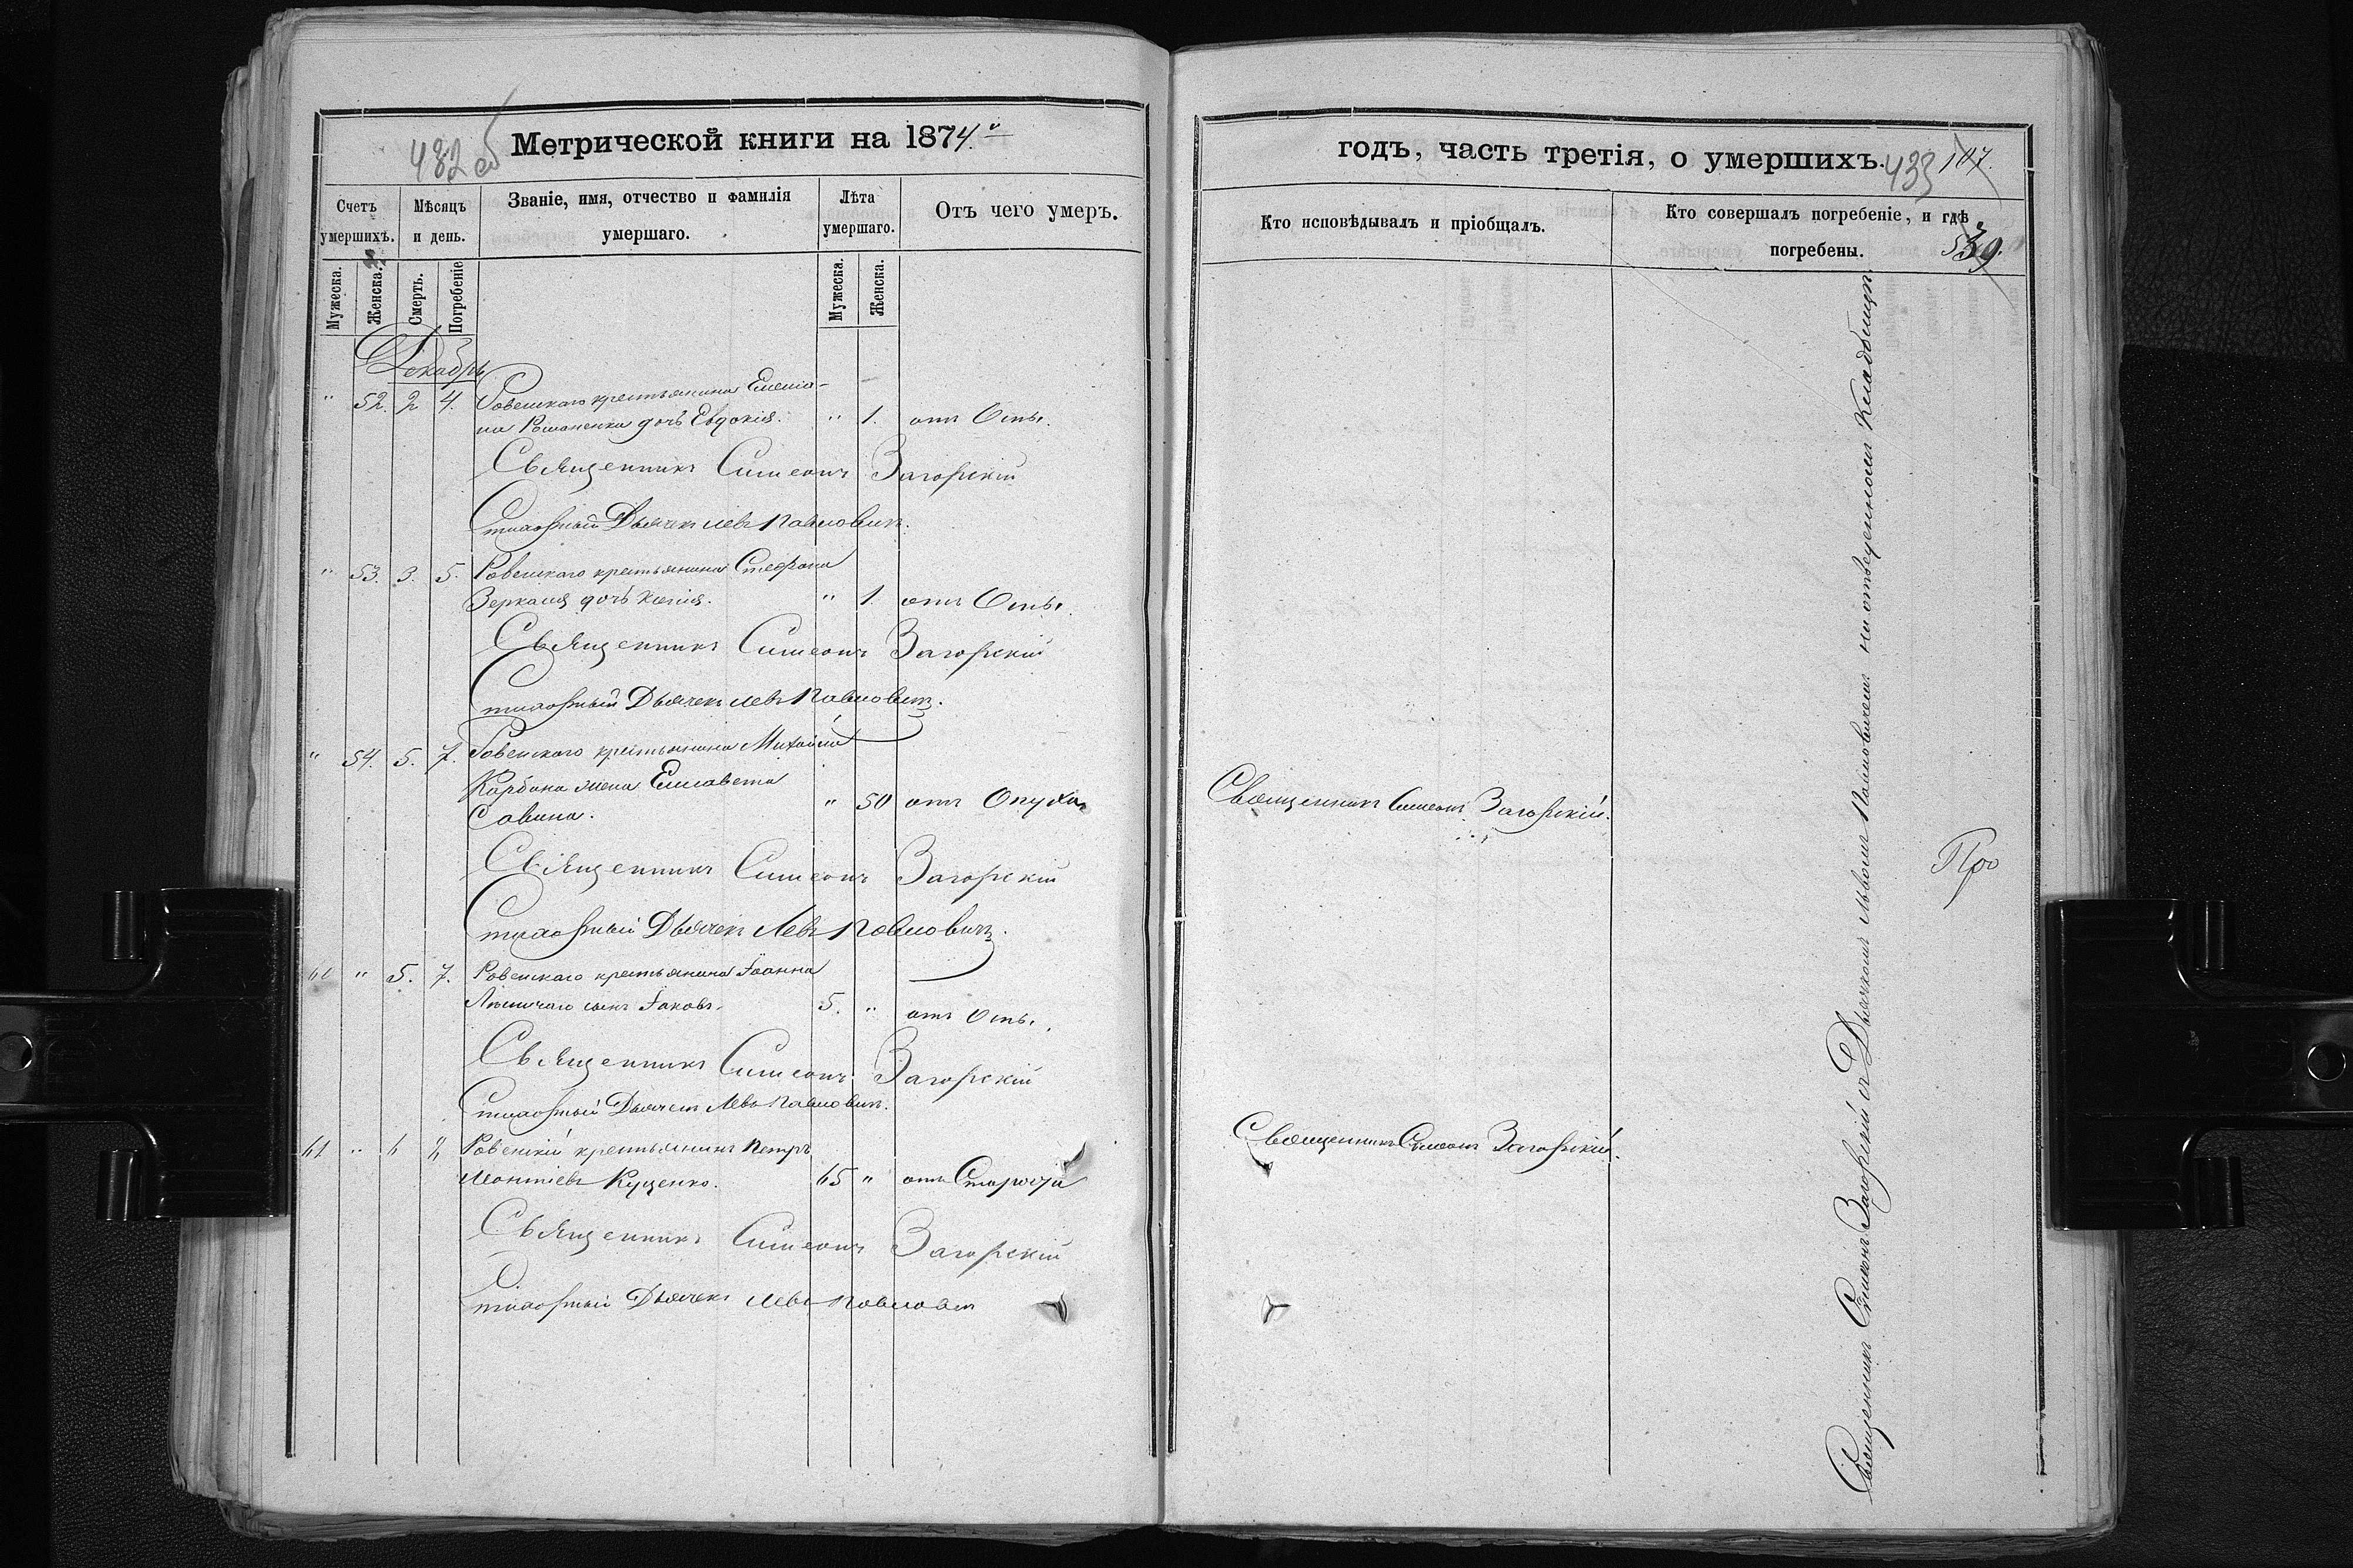 482 об
Метрической книги на 1874й
Счетъ умершихъ.
Мѣсяцъ и день.
Званіе, имя, отчество и фамилія умершаго.
Лѣта умершаго.
Отъ чего умеръ.
Мужеска.
Женска.
Смерть.
Погребеніе
Мужеска.
Женска.
Декабрь
" 52. 2 4. Ровенскаго крестьянина Емелiа-
на Романенка дочь Евдокія. " 1. отъ Оспы.
Священникъ Симеонъ Загорскій
Стихарный Дьячекъ Левъ Павловичъ.
" 53. 3. 5. Ровенскаго крестьянина Стефана
Зеркаля дочь Ксенія. " 1. отъ Оспы.
Священникъ Симеонъ Загорскій
Стихарный Дьячекъ Левъ Павловичъ.
" 54. 5. 7. Ровенскаго крестьянина Михаила
Карбана жена Елисавета
Савина. " 50 отъ Опухли
Священникъ Симеонъ Загорскій
Стихарный Дьячекъ Левъ Павловичъ.
" 5. 7. Ровенскаго крестьянина Іоанна
сынъ Іаковъ. 5. " отъ Оспы.
Священникъ Симеонъ Загорскій
Стихарный Дьячекъ Левъ Павловичъ.
61 " 6 Ровенскій крестьянинъ Петръ
Леонтіевъ Куценко. 65 " отъ Старости
Священникъ Симеонъ Загорскій
Стихарный Дьячекъ Левъ Павлович
годъ, часть третія, о умершихъ.
433 107.
Кто исповѣдывалъ и пріобщалъ.
Кто совершалъ погребеніе, и гдѣ погребены.
539.
Священникъ Симеонъ Загорскій.
Священникъ Симеонъ Загорскій.
Священникъ Симеонъ Загорскій съ Дьячкомъ Львомъ Павловичемъ на отведенномъ Кладбищѣ.
Про